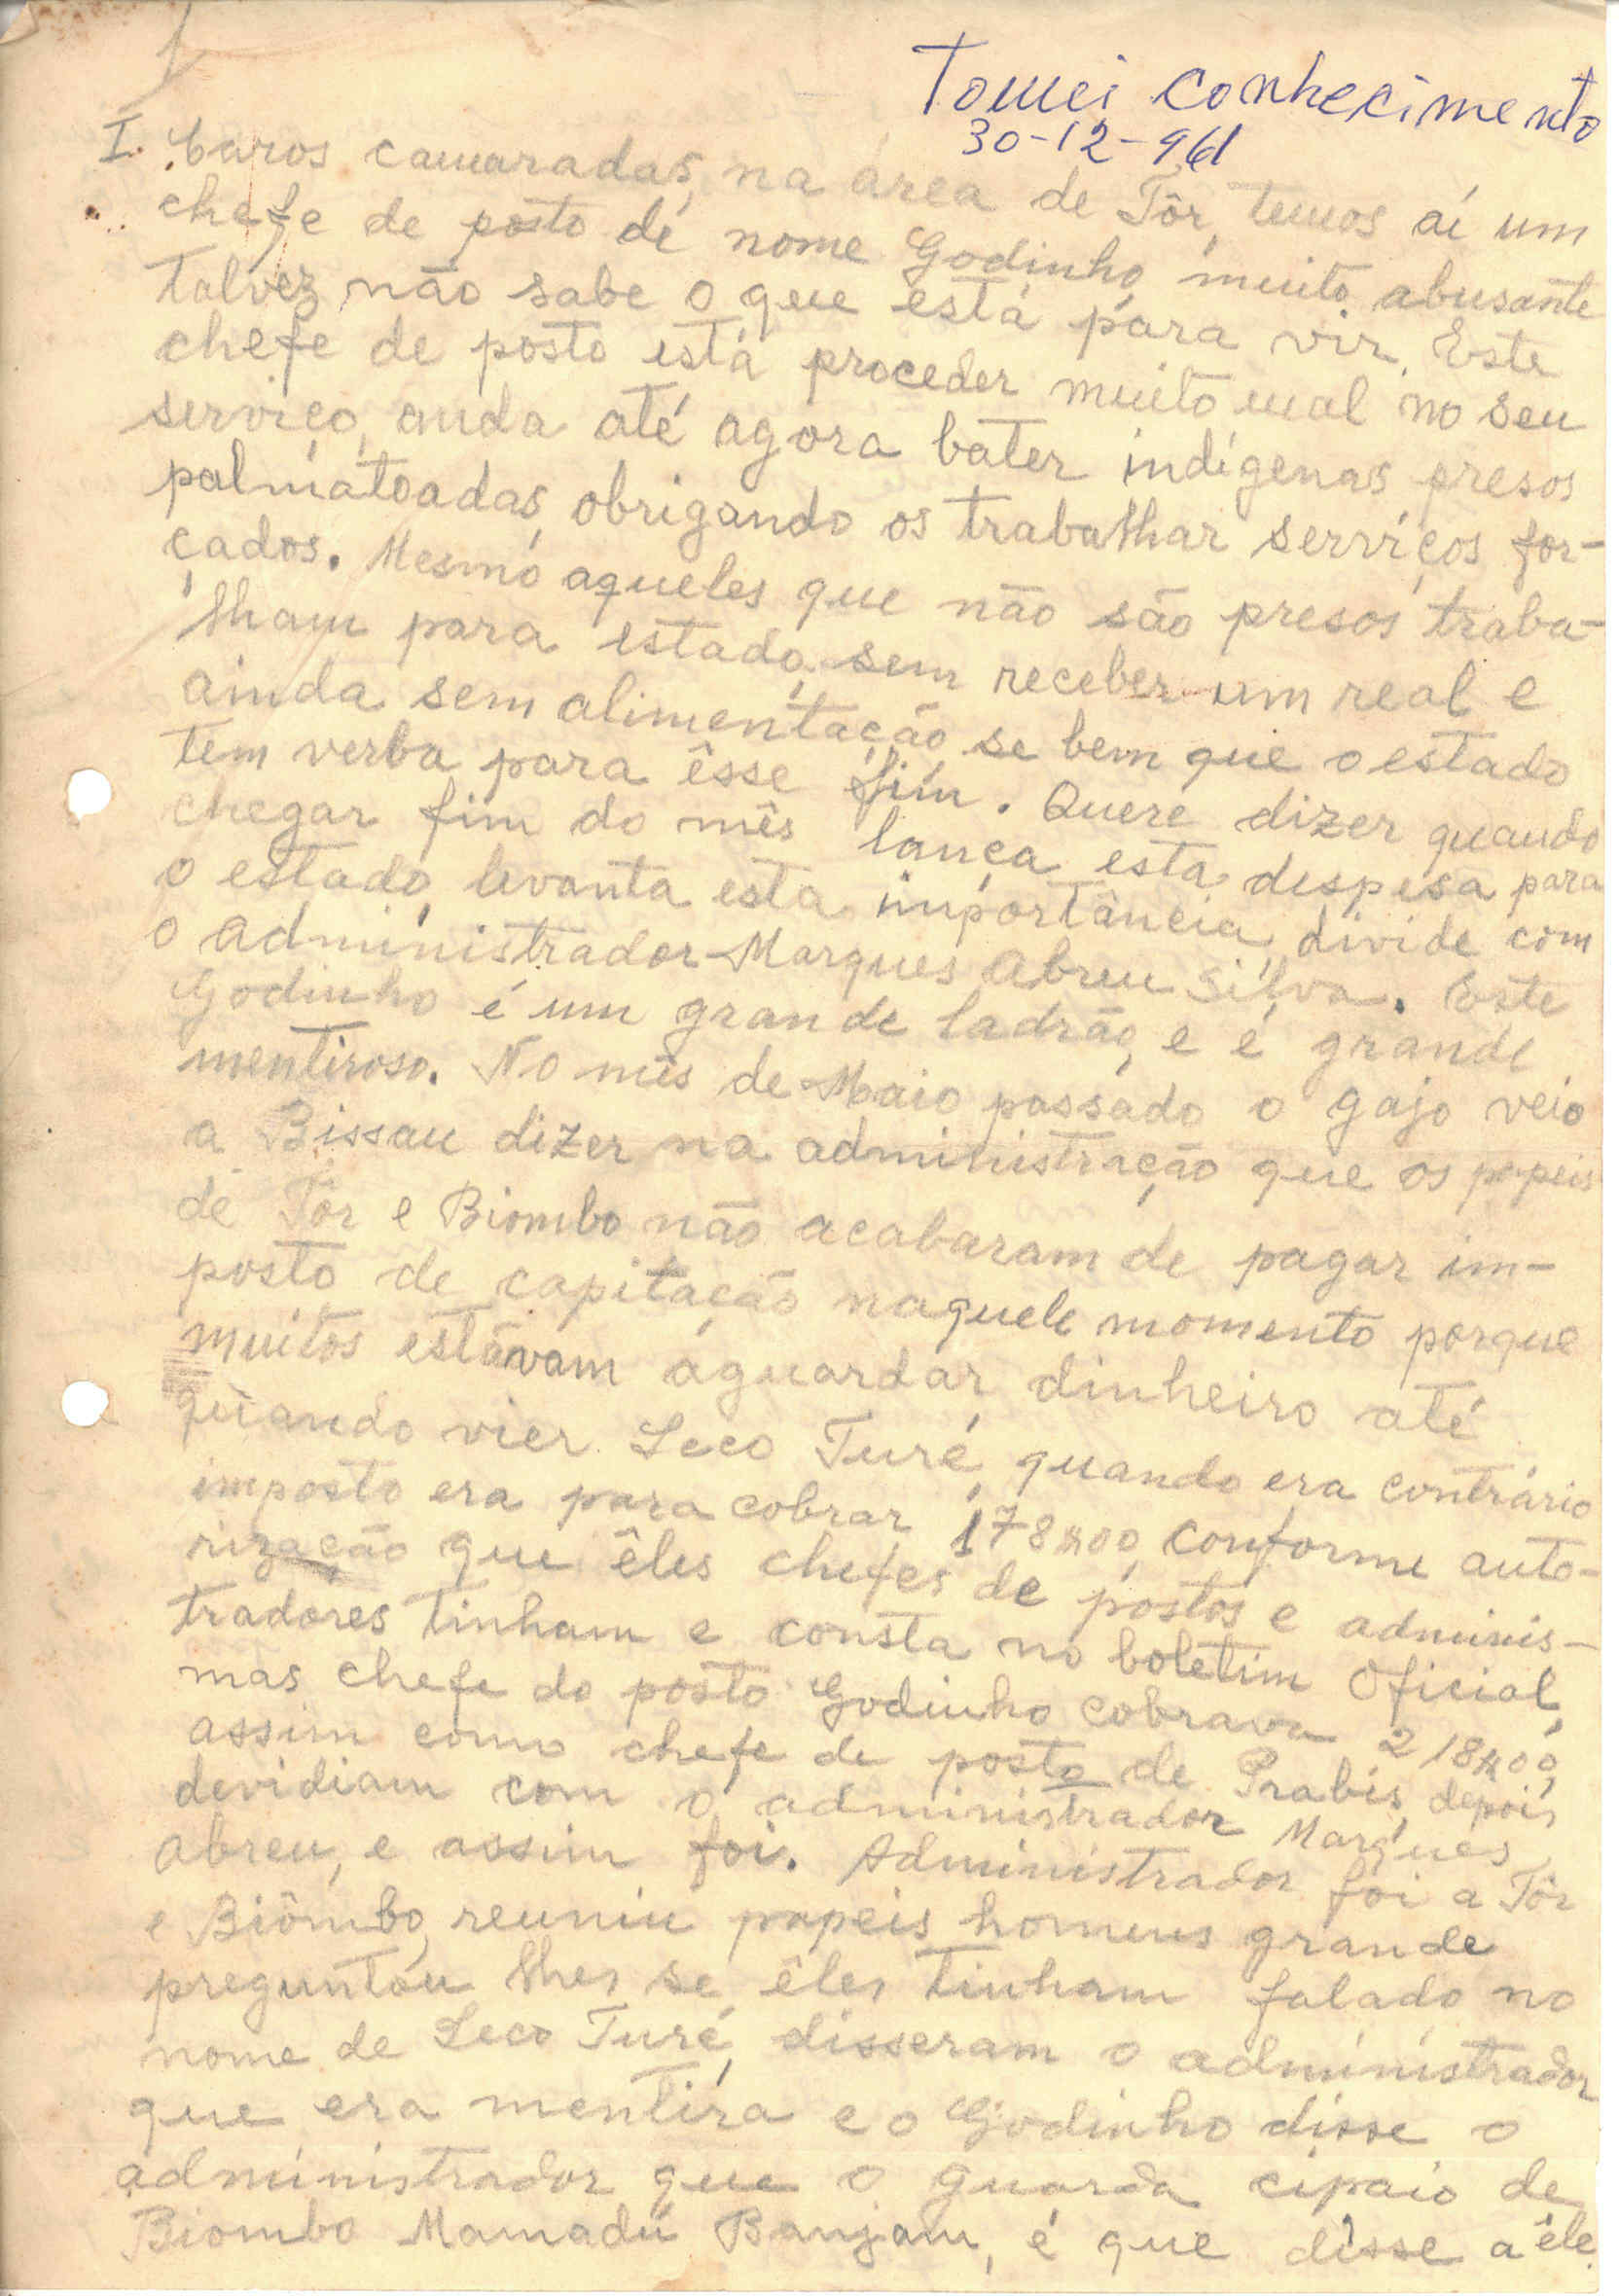 Tomei conhecimento
30-12-961
I. Caros camaradas, na área de Tôr, temos aí um
chefe de posto de nome Godinho, muito abusante
talvez não sabe o que está para vir. Este
chefe de posto está proceder muito mal no seu
serviço, anda até agora bater indígenas presos
palmatoadas, obrigando os trabalhar serviços for-
çados. Mesmo aqueles que não são presos traba-
lham para estado, sem receber um real e
ainda sem alimentação, se bem que o estado
tem verba para êsse fim. Quere dizer quando
chegar fim do mês lança esta despesa para
o estado, levanta esta importância, divide com
o administrador Marques Abreu Silva. Este
Godinho é um grande ladrão, e é grande
mentiroso. No mês de Maio passado o gajo veio
a Bissau dizer na administração que os papeis
de Tôr e Biombo não acabaram de pagar im-
posto de capitação naquele momento porque
muitos estavam aguardar dinheiro até
quando vier Seco Turé, quando era contrário
imposto era para cobrar 178$00, conforme auto-
rização que êles chefes de postos e adminis-
tradores tinham e consta no boletim Oficial,
mas chefe do posto Godinho cobrava 218$00,
assim como chefe de posto de Prabis, depois
devidiam com o administrador Marques
Abreu, e assim foi. Administrador foi a Tôr
e Biômbo, reuniu papeis homens grande
preguntou lhes se êles tinham falado no
nome de Seco Turé, disseram o administrador
que era mentira e o Godinho disse o
administrador que o guarda cipaio de
Biombo Mamadú Banjam, é que disse a êle.